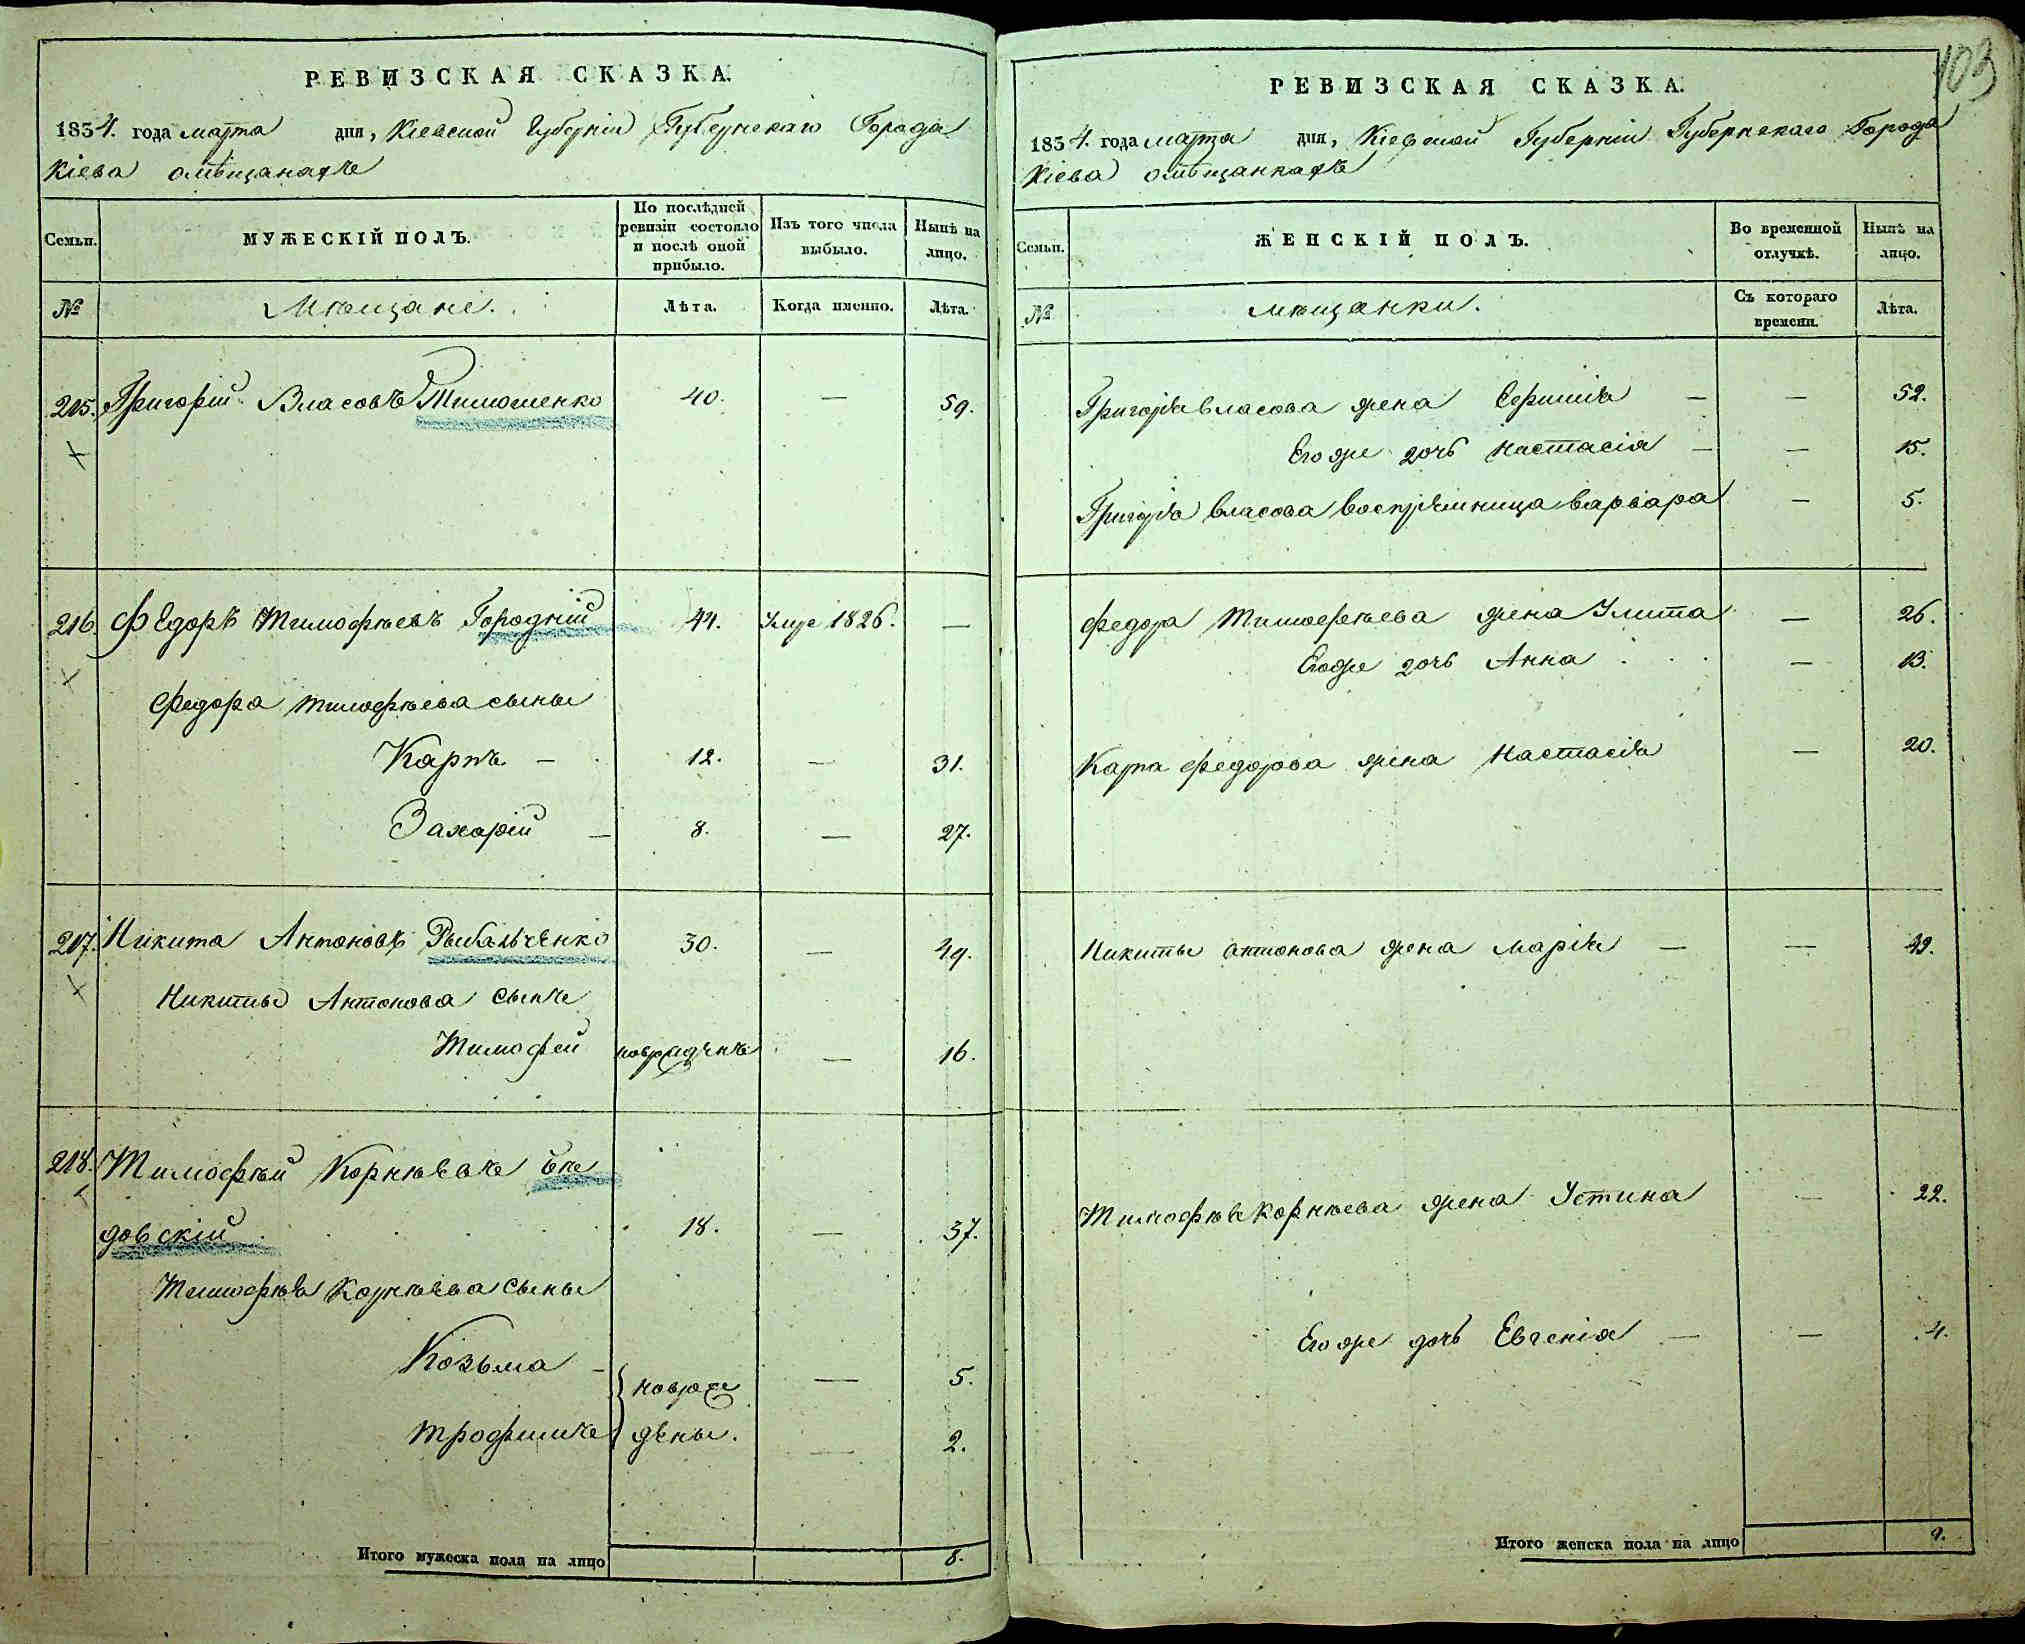 РЕВИЗСКАЯ СКАЗКА.
1854. года марта дня, Кіевской Губерніи Губернскаго Города
Кіева омѣщанахъ
Семьи. МУЖЕСКІЙ ПОЛЪ. По послѣдней ревизіи состояло и послѣ оной прибыло. Изъ того числа выбыло. Нынѣ на лицо.
№ Мѣщане. Лѣта. Когда именно. Лѣта.
215. Григорій Власовъ Тимошенко 40. — 59.
216. Федоръ Тимофѣевъ Городній 44. Умре 1826. —
Федора Тимофѣева сыны
Карпъ — 12. — 31.
Захарій — 8. — 27.
217. Никита Антоновъ Рыбальченко 30. — 49.
Никиты Антонова сынъ
Тимофей новрожденъ — 16.
218. Тимофѣй Корнѣевъ
довскій 18. — 37.
Тимофѣя Корнѣева сыны
Козьма — новрож — 5.
Трофимъ дены. — 2.
Итого мужеска пола на лицо 8.
103
РЕВИЗСКАЯ СКАЗКА.
1854. года марта дня, Кіевской Губерніи Губернскаго Города
Кіева омѣщанкахъ
Семьи. ЖЕНСКІЙ ПОЛЪ. Во временной отлучкѣ. Нынѣ на лицо.
№ мѣщанки. Съ котораго времени. Лѣта.
Григорія власова жена — — 52.
Его же дочь Настасія — — 15.
Григорія власова воспріемница варвара — 5.
Федора Тимофѣева жена Улита — 26.
Егоже дочь Анна — 13.
Карпа Федорова жена Настасія — 20.
Никиты антонова жена Марія — — 49.
Тимофѣя Корнѣева жена Устина — 22.
Его же дочь Евгенія — — 4.
Итого женска пола на лицо 9.